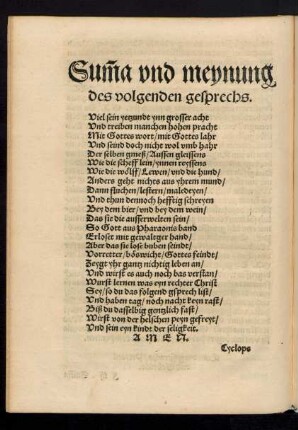 Sum̃a vnd meynung
des volgenden gesprechs.
Viel sein yetzundt ynn grosser acht
Vnd treiben manchen hohen pracht
Mit Gottes wort/ mit Gottes lahr
Vnd seind doch nicht wol vmb hahr
Der selben gmeß/ Aussen gleissens
Wie die scheff lein/ ynnen reyssens
Wie die wölff/ Lewen/ vnd die hund/
Anders geht nichts aus yhrem mund/
Dann fluchen/ lestern/ maledeyen/
Vnd thun dennoch hefftig schreyen
Bey dem bier/ vnd bey dem wein/
Das sie die ausserwelten sein/
So Gott aus Pharaonis hand
Erloset mit gewaltger hand/
Aber das sie lose buben seindt/
Vorretter/ böswicht/ Gottes feindt/
Zeygt yhr gantz nichtig leben an/
Vnd wirst es auch noch bas verstan/
Wurst lernen was eyn rechter Christ
Sey/ so du das folgend gsprech list/
Vnd haben tag/ noch nacht keyn rast/
Biß du dasselbig gentzlich fast/
Wirst von der helschen peyn gefreyt/
Vnd sein eyn kindt der seligkeit.
A M E N.
Cyclops